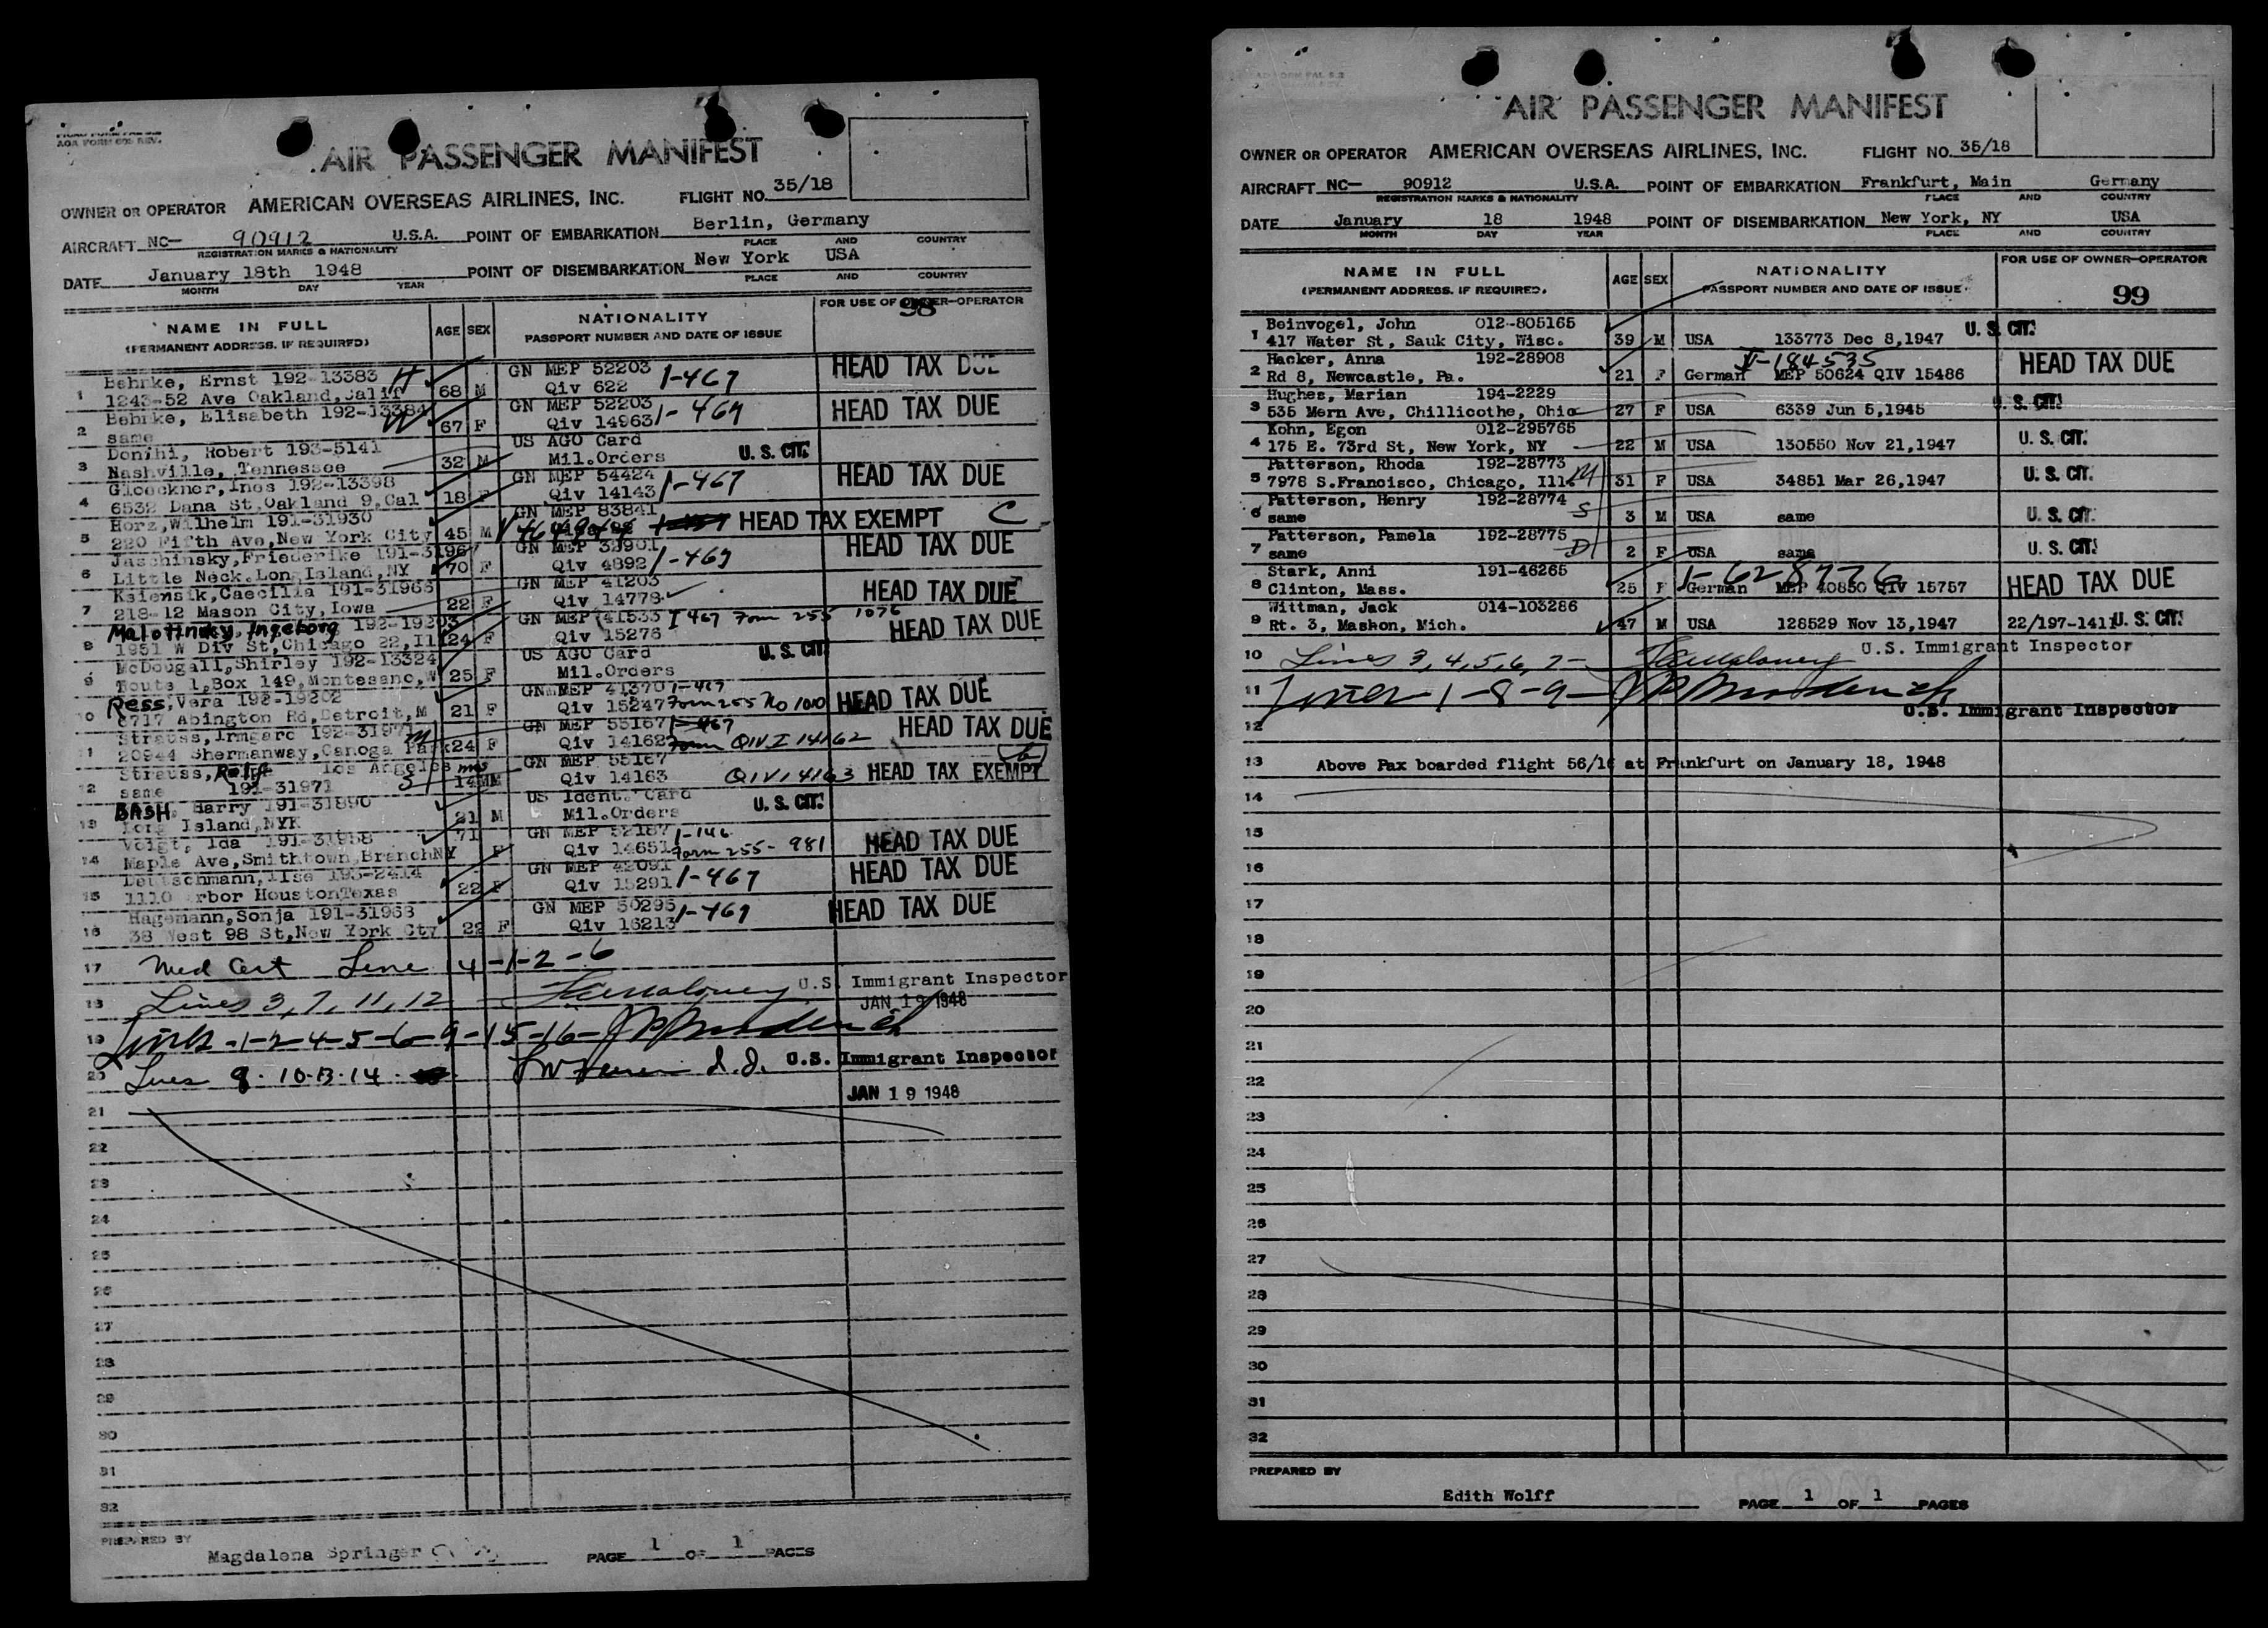 AOA FORM 600 REV.
AIR PASSENGER MANIFEST
OWNER OR OPERATOR AMERICAN OVERSEAS AIRLINES, INC. FLIGHT NO. 35/18
AIRCRAFT NC— 90912 U.S.A. POINT OF EMBARKATION Berlin, Germany
REGISTRATION MARKS & NATIONALITY PLACE AND COUNTRY
DATE January 18th 1948 POINT OF DISEMBARKATION New York USA
MONTH DAY YEAR PLACE AND COUNTRY
NAME IN FULL AGE SEX NATIONALITY FOR USE OF OWNER-OPERATOR
(PERMANENT ADDRESS. IF REQUIRED) PASSPORT NUMBER AND DATE OF ISSUE 98
Behnke, Ernst 192-13383 H GN MEP 52203 HEAD TAX DUE
1 1243-52 Ave Oakland,Calif 68 M Qiv 622 1-467
Behnke, Elisabeth 192-13384 W GN MEP 52203 HEAD TAX DUE
2 same 67 F Qiv 14963 1-467
Donihi, Robert 193-5141 US AGO Card
3 Nashville, Tennessee 32 M Mil.Orders U. S. CIT.
Gloeckner,Ines 192-13398 GN MEP 54424 HEAD TAX DUE
4 6532 Dana St.Oakland 9,Cal 18 F Qiv 14143 1-467
Horz,Wilhelm 191-31930 GN MEP 83841
5 220 Fifth Ave,New York City 45 M HEAD TAX EXEMPT C
Jaschinsky,Friederike 191-3196 GN MEP 32901 HEAD TAX DUE
6 Little Neck.Long Island,NY 70 F Qiv 4892 1-467
Ksiensik,Caecilia 191-31965 GN MEP 41203
7 218-12 Mason City,Iowa 22 F Qiv 14778 HEAD TAX DUE
Malotinsky, Ingeborg 192-19203 GN MEP 41533 I 467 Form 255 1076
8 1951 W Div St,Chicago 22,Il 24 F Qiv 15276 HEAD TAX DUE
McDougall,Shirley 192-13324 US AGO Card U. S. CIT
9 Route 1,Box 149,Montesano,W 25 F Mil.Orders
Ress,Vera 192-19202 GN MEP 41370 1-467
10 8717 Abington Rd,Detroit,M 21 F Qiv 15247 Form 255 No 1010 HEAD TAX DUE
Strauss,Irmgard 192-3197 m GN MEP 55167 1-467
11 20944 Shermanway,Canoga Park 24 F Qiv 14162 Form QIV I 14162 HEAD TAX DUE
Strauss,Ralf Los Angeles mos GN MEP 55167
12 same 191-31971 S 14 M Qiv 14163 QIV14163 HEAD TAX EXEMPT
BASH Harry 191-31890 US Ident. Card
13 Long Island,NYK 21 M Mil.Orders U. S. CIT.
Voigt, Ida 191-31958 71 GN MEP 52187 1-146
14 Maple Ave,Smithtown,BranchNY F Qiv 14651 Form 255- 981 HEAD TAX DUE
Deutschmann,Ilse 193-2414 GN MEP 42091 HEAD TAX DUE
15 1110 rbor HoustonTexas 22 F Qiv 15291 1-467
Hagemann,Sonja 191-31963 GN MEP 50295 HEAD TAX DUE
16 38 West 98 St,New York Cty 22 F Qiv 16213 1-467
17 Med Cert Line 4-1-2-6
18 Lines 3, 7, 11, 12 U.S. Immigrant Inspector
JAN 19 1948
19 Lines -1-2-4-5-6-9-15-16-
20 Lines 8. 10.13.14 U.S. Immigrant Inspector
21 JAN 19 1948
22
23
24
25
26
27
28
29
30
31
32
PREPARED BY
Magdalena Springer PAGE 1 OF 1 PAGES
AIR PASSENGER MANIFEST
OWNER OR OPERATOR AMERICAN OVERSEAS AIRLINES, INC. FLIGHT NO. 35/18
AIRCRAFT NC— 90912 U.S.A. POINT OF EMBARKATION Frankfurt, Main Germany
REGISTRATION MARKS & NATIONALITY PLACE AND COUNTRY
DATE January 18 1948 POINT OF DISEMBARKATION New York, NY USA
MONTH DAY YEAR PLACE AND COUNTRY
NAME IN FULL AGE SEX NATIONALITY FOR USE OF OWNER-OPERATOR
(PERMANENT ADDRESS. IF REQUIRED. PASSPORT NUMBER AND DATE OF ISSUE 99
Beinvogel, John 012-805165
1 417 Water St, Sauk City, Wisc. 39 M USA 133773 Dec 8,1947 U. S. CIT.
Hacker, Anna 192-28908 V-184535
2 Rd 8, Newcastle, Pa. 21 F German MEP 50624 QIV 15486 HEAD TAX DUE
Hughes, Marian 194-2229
3 535 Mern Ave, Chillicothe, Ohio 27 F USA 6339 Jun 5,1945 U. S. CIT.
Kohn, Egon 012-295765
4 175 E. 73rd St, New York, NY 22 M USA 130550 Nov 21,1947 U. S. CIT.
Patterson, Rhoda 192-28773
5 7978 S.Francisco, Chicago, Ill. M 31 F USA 34851 Mar 26,1947 U. S. CIT.
Patterson, Henry 192-28774
6 same S 3 M USA same U. S. CIT.
Patterson, Pamela 192-28775
7 same D 2 F USA same U. S. CIT.
Stark, Anni 191-46265 1-628776
8 Clinton, Mass. 25 F German MEP 40850 QIV 15757 HEAD TAX DUE
Wittman, Jack 014-103286
9 Rt. 3, Mashon, Mich. 47 M USA 128529 Nov 13,1947 22/197-1411 U. S. CIT.
10 Lines 3, 4, 5, 6, 7 - U.S. Immigrant Inspector
11 Lines - 1-8-9-
12 U.S. Immigrant Inspector
13 Above Pax boarded flight 56/16 at Frankfurt on January 18, 1948
14
15
16
17
18
19
20
21
22
23
24
25
26
27
28
29
30
31
32
PREPARED BY
Edith Wolff PAGE 1 OF 1 PAGES